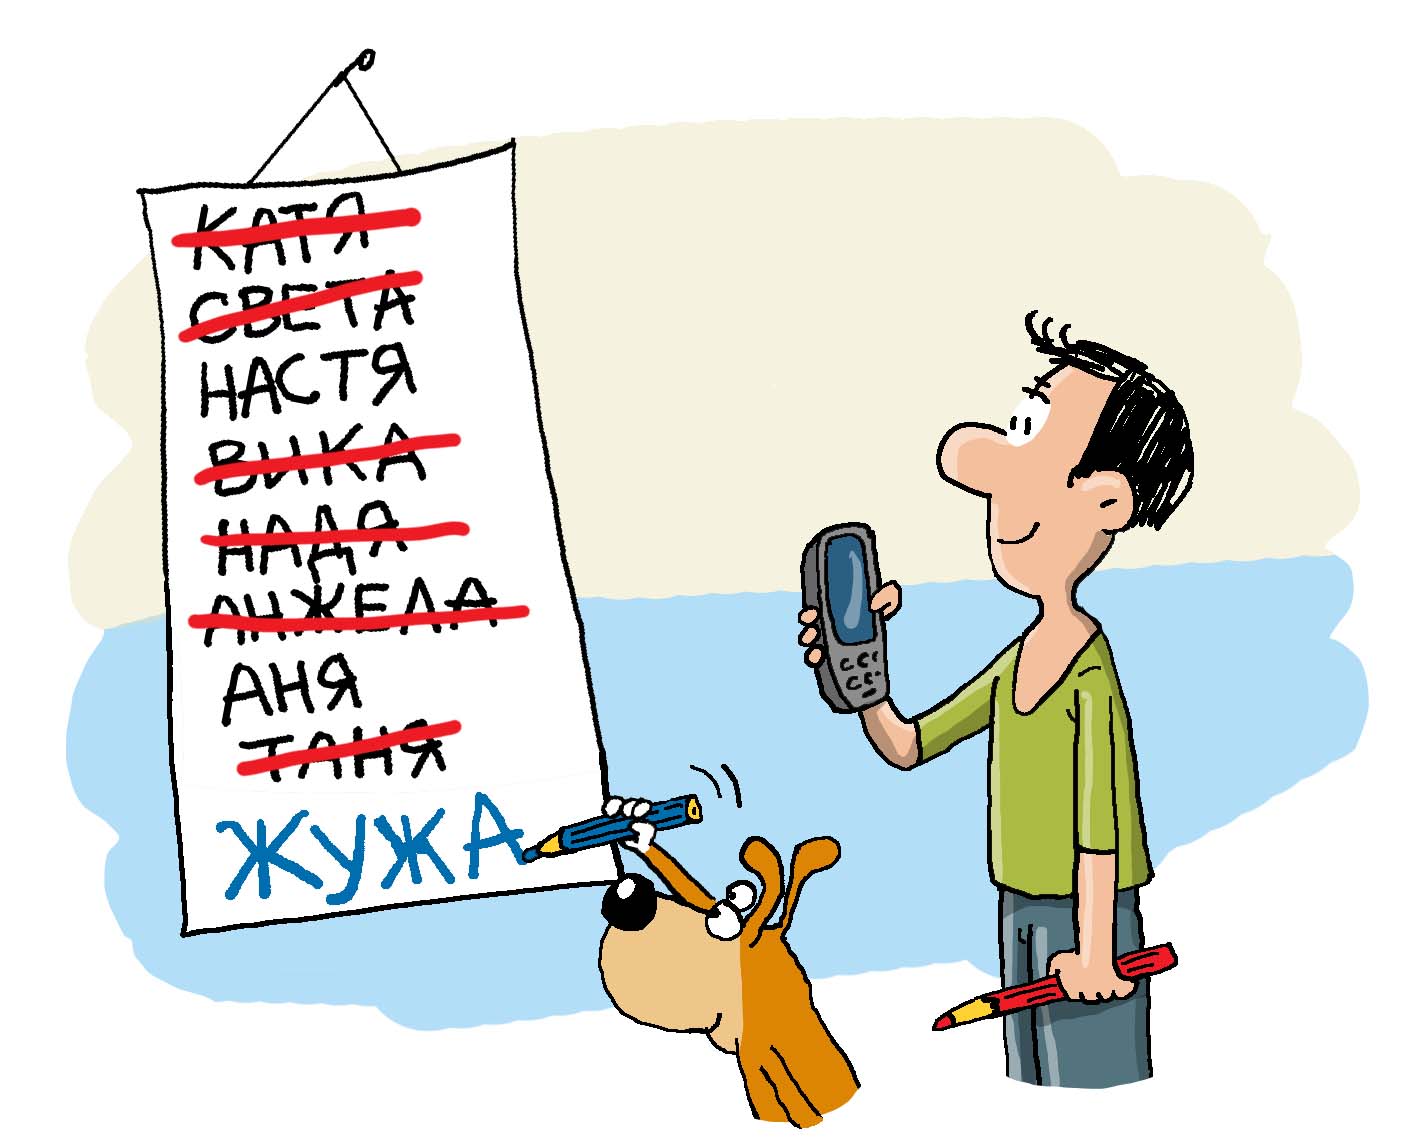 КАТЯ
СВЕТА
НАСТЯ
ВИКА
НАДЯ
АНЖЕЛА
АНЯ
ТАНЯ
ЖУЖА